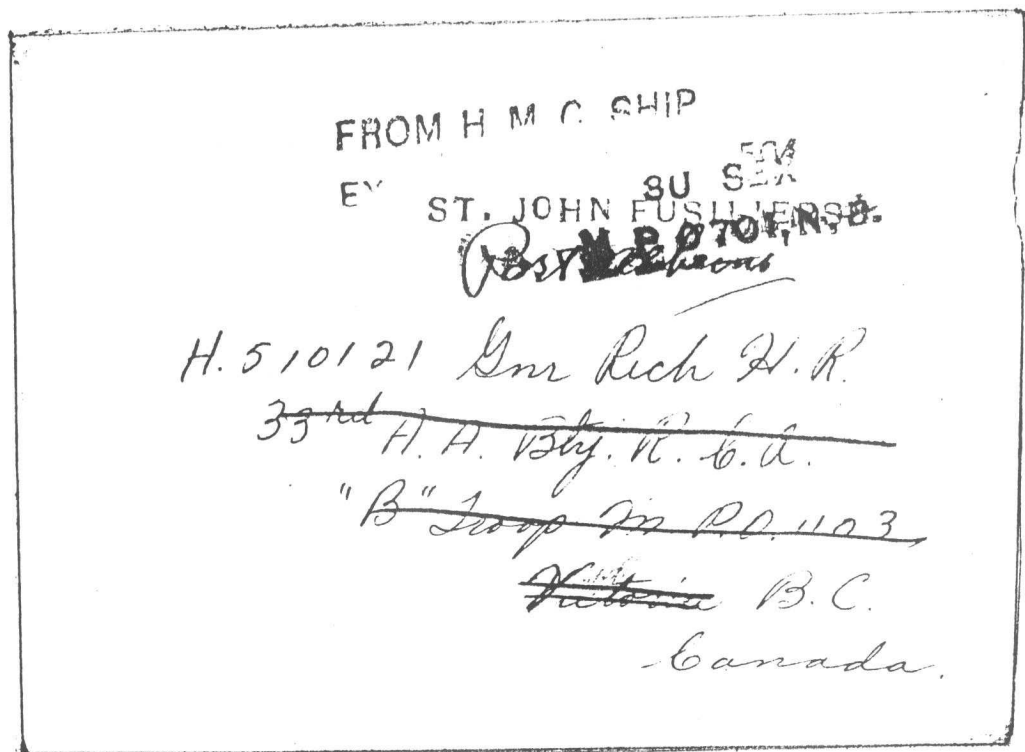 FROM H M C SHIP
EX
SU S EX
ST. JOHN FUSILIERS
M P O 701, N. B.
H. 510121 Gnr Rich H. R.
33rd A. A. Bty. R. C. A.
"B" Troop M. P. O. 1103
Victoria B. C.
Canada.